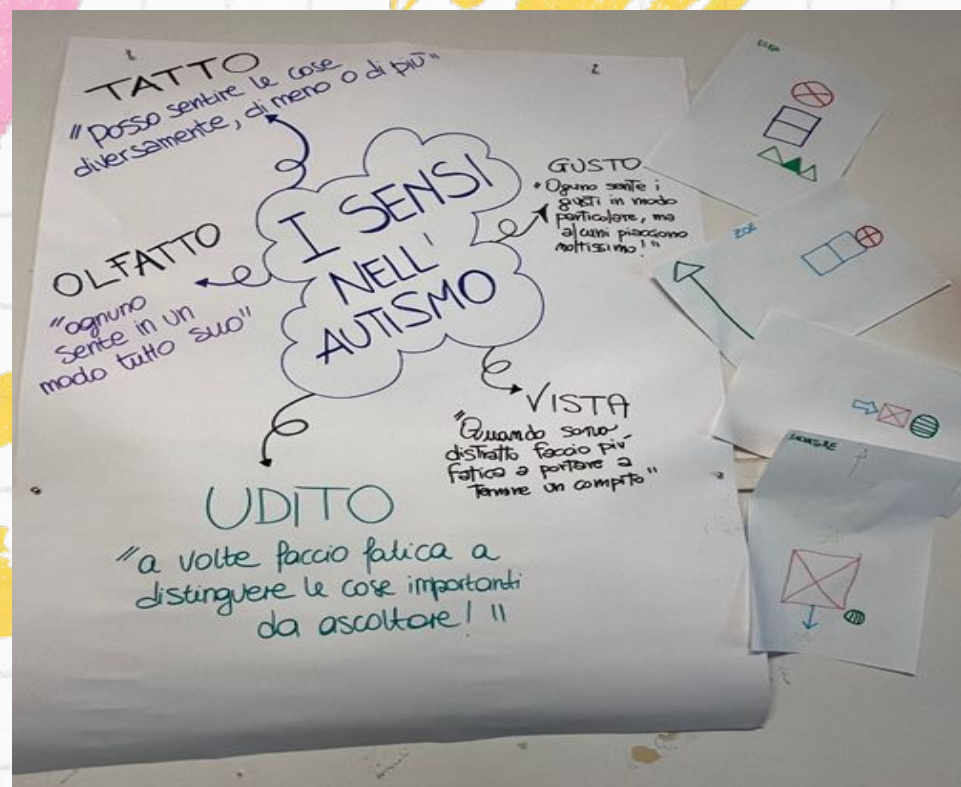 TATTO
"Posso sentire le cose
diversamente, di meno o di più"
I SENSI
NELL'
AUTISMO
GUSTO
"Ognuno sente i
gusti in modo
particolare, ma
alcuni piacciono
moltissimo!"
OLFATTO
"ognuno
sente in un
modo tutto suo"
VISTA
"Quando sono
distratto faccio più
fatica a portare a
termine un compito"
UDITO
"a volte faccio fatica a
distinguere le cose importanti
da ascoltare!"
ZOE